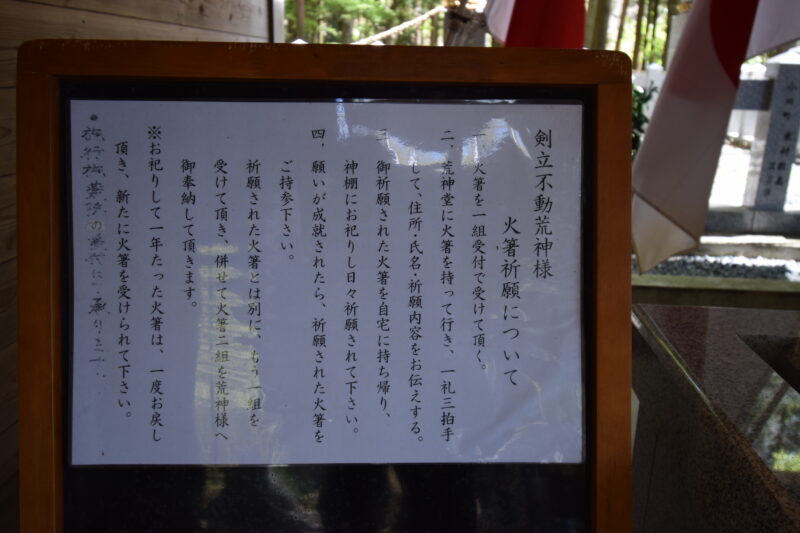 剣立不動荒神様
火箸祈願について
一、火箸を一組受付で受けて頂く。
二、荒神堂に火箸を持って行き、一礼三拍手
して、住所・氏名・祈願内容をお伝えする。
三、御祈願された火箸を自宅に持ち帰り、
神棚にお祀りし日々祈願されて下さい。
四、願いが成就されたら、祈願された火箸を
ご持参下さい。
祈願された火箸とは別に、もう一組を
受けて頂き、併せて火箸二組を荒神様へ
御奉納して頂きます。
※お祀りして一年たった火箸は、一度お戻し
頂き、新たに火箸を受けられて下さい。